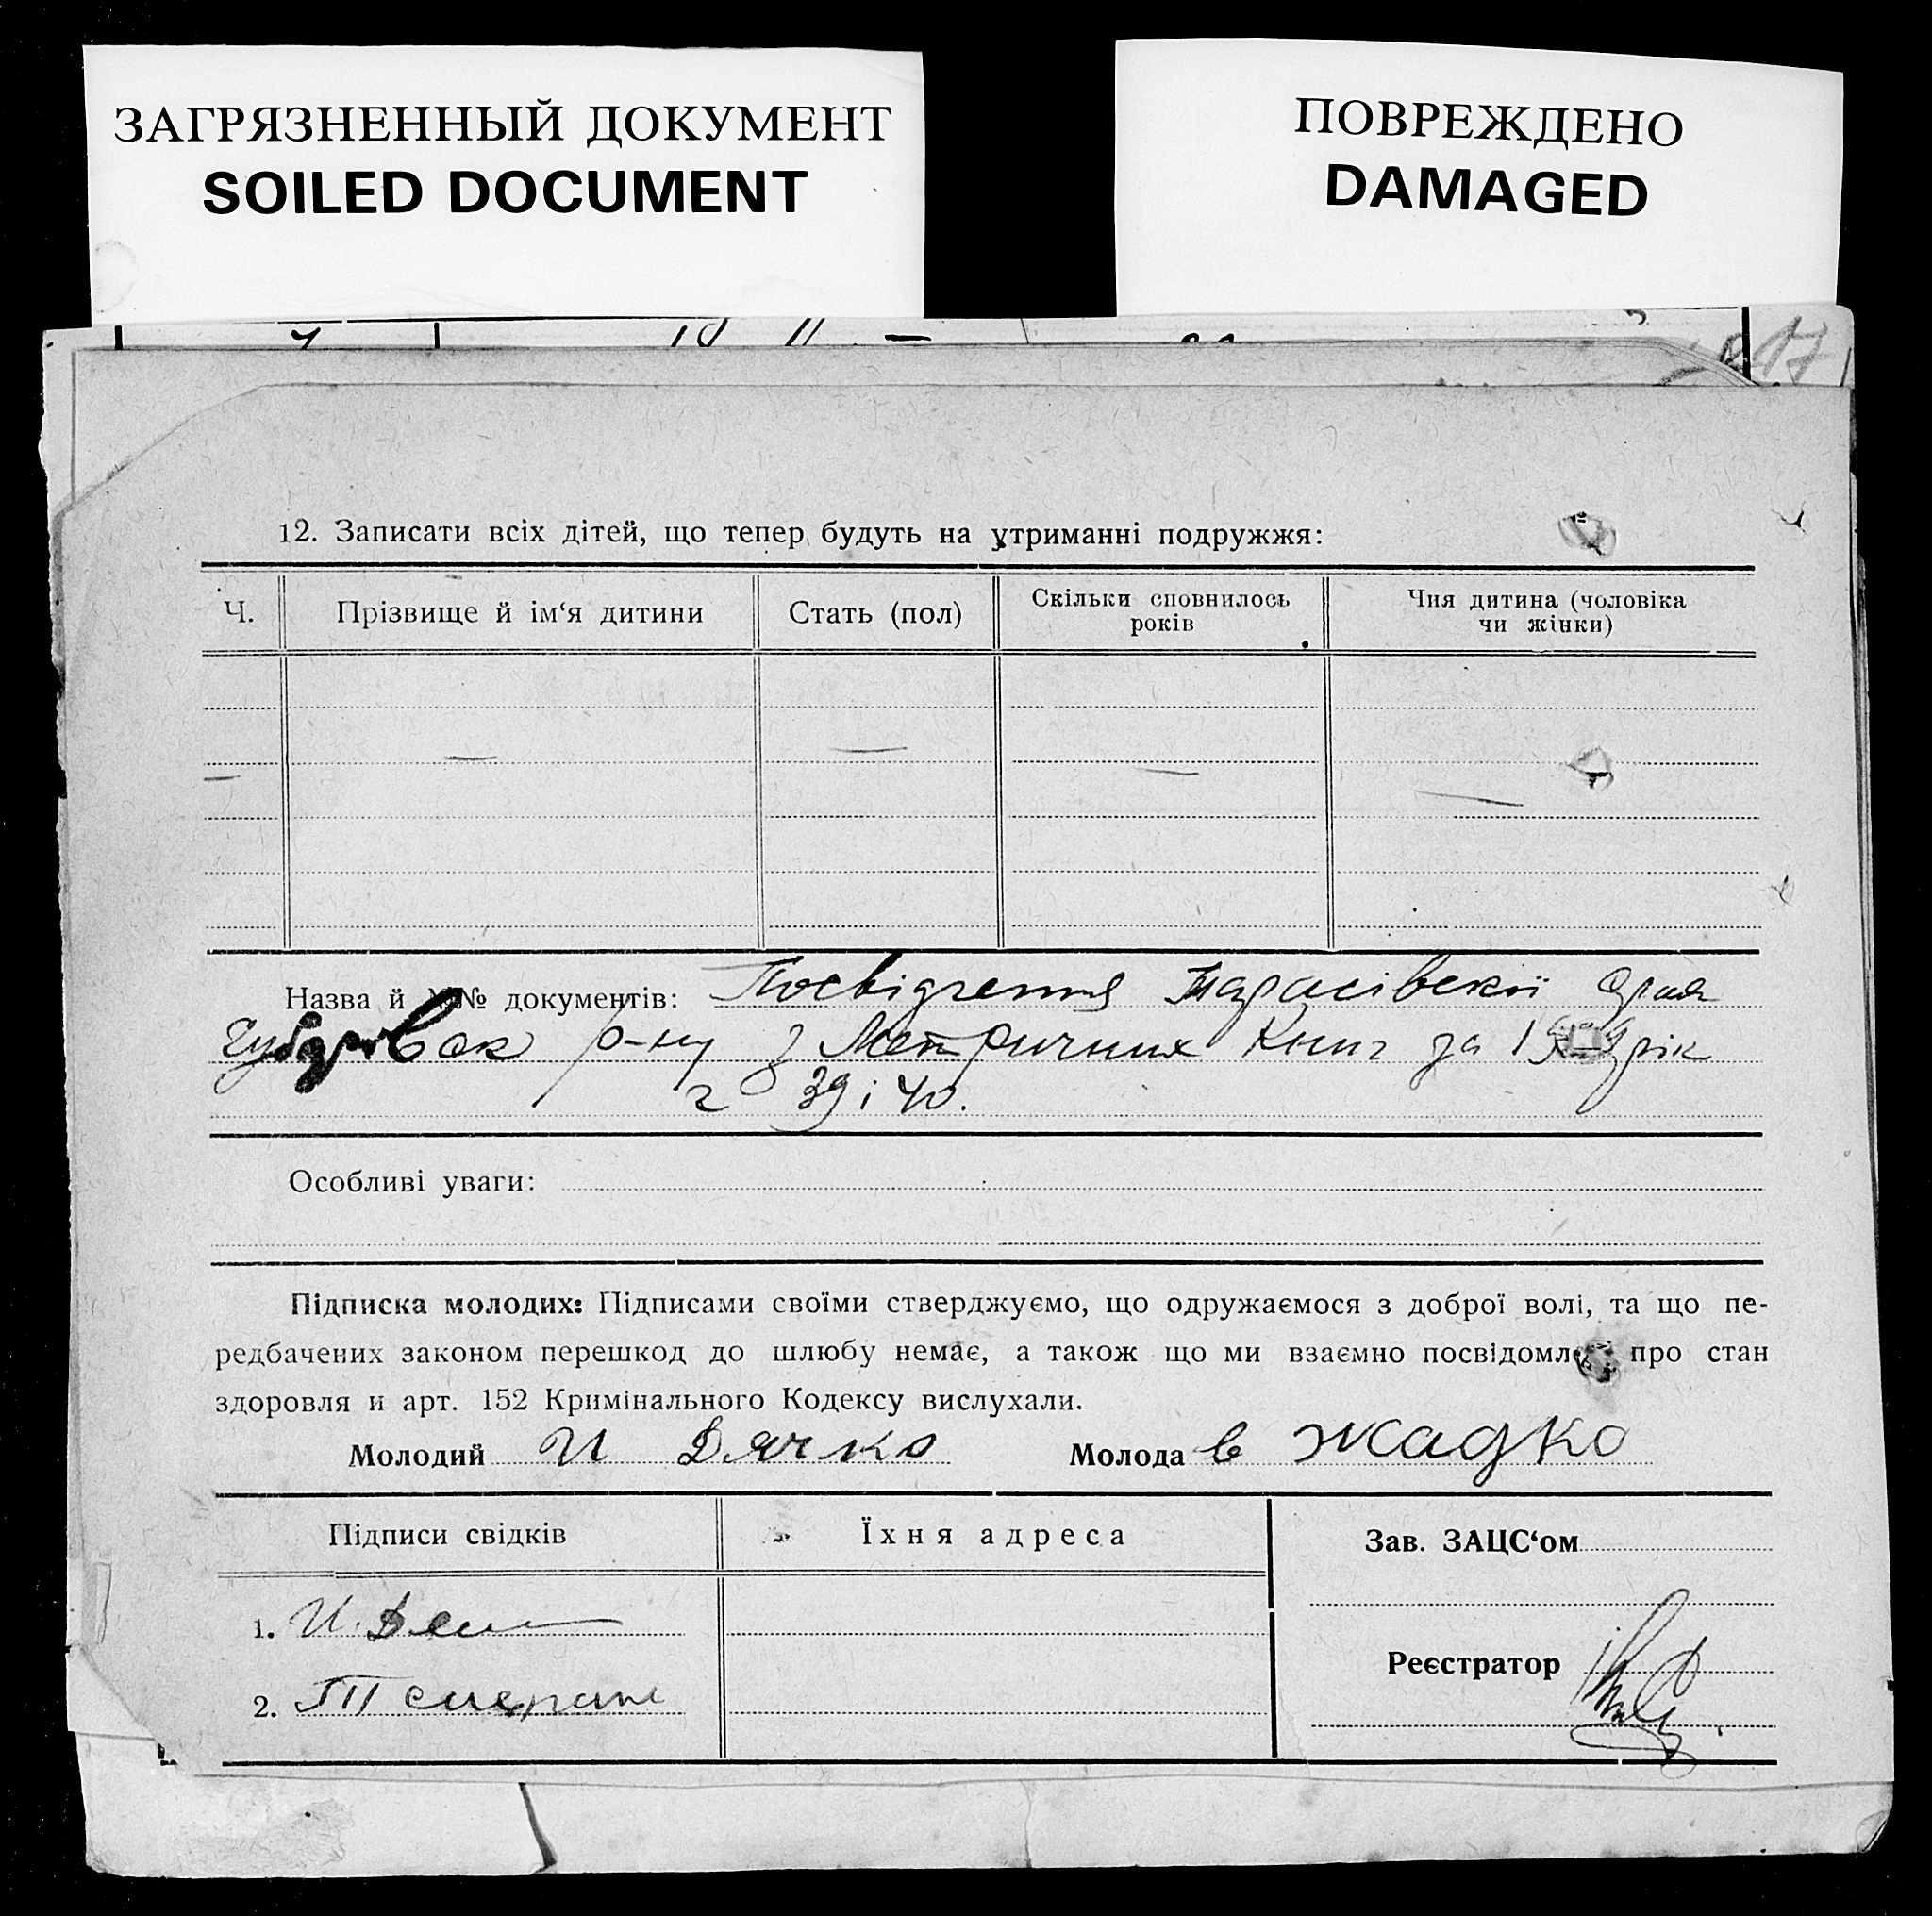 ЗАГРЯЗНЕННЫЙ ДОКУМЕНТ
SOILED DOCUMENT
ПОВРЕЖДЕНО
DAMAGED
12. Записати всіх дітей, що тепер будуть на утриманні подружжя:
Ч.
Прізвище й ім‘я дитини
Стать (пол)
Скільки сповнилось
років
Чия дитина (чоловіка
чи жінки)
Назва й №№ документів: Посвідчення Тарасівскої
р-ну з Метричних Книг за рік
39 і 40.
Особливі уваги:
Підписка молодих: Підписами своїми стверджуємо, що одружаємося з доброї волі, та що пе-
редбачених законом перешкод до шлюбу немає, а також що ми взаємно про стан
здоровля и арт. 152 Кримінального Кодексу вислухали.
Молодий И Дячко Молода в Жадко
Підписи свідків
Їхня адреса
Зав. ЗАЦС‘ом
1. И.
2.
Реєстратор